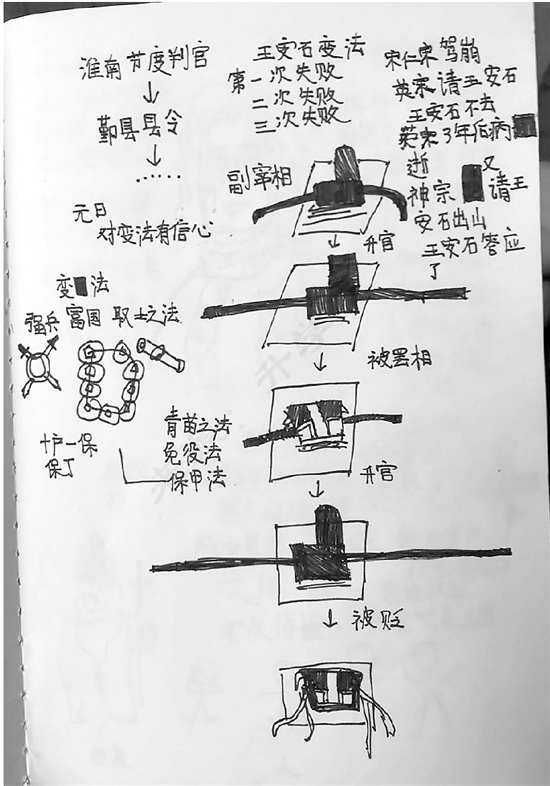 淮南节度判官
↓
鄞县县令
↓
……
元日
对变法有信心
王安石变法
第一次失败
二次失败
三次失败
宋仁宗驾崩
英宗请王安石
王安石不去
英宗3年后病
逝
神宗又请王
安石出山
王安石答应
了
副宰相
↓升官
↓被罢相
变法
强兵 富国 取士之法
十户一保
保丁
青苗之法
免役法
保甲法
↓升官
↓被贬